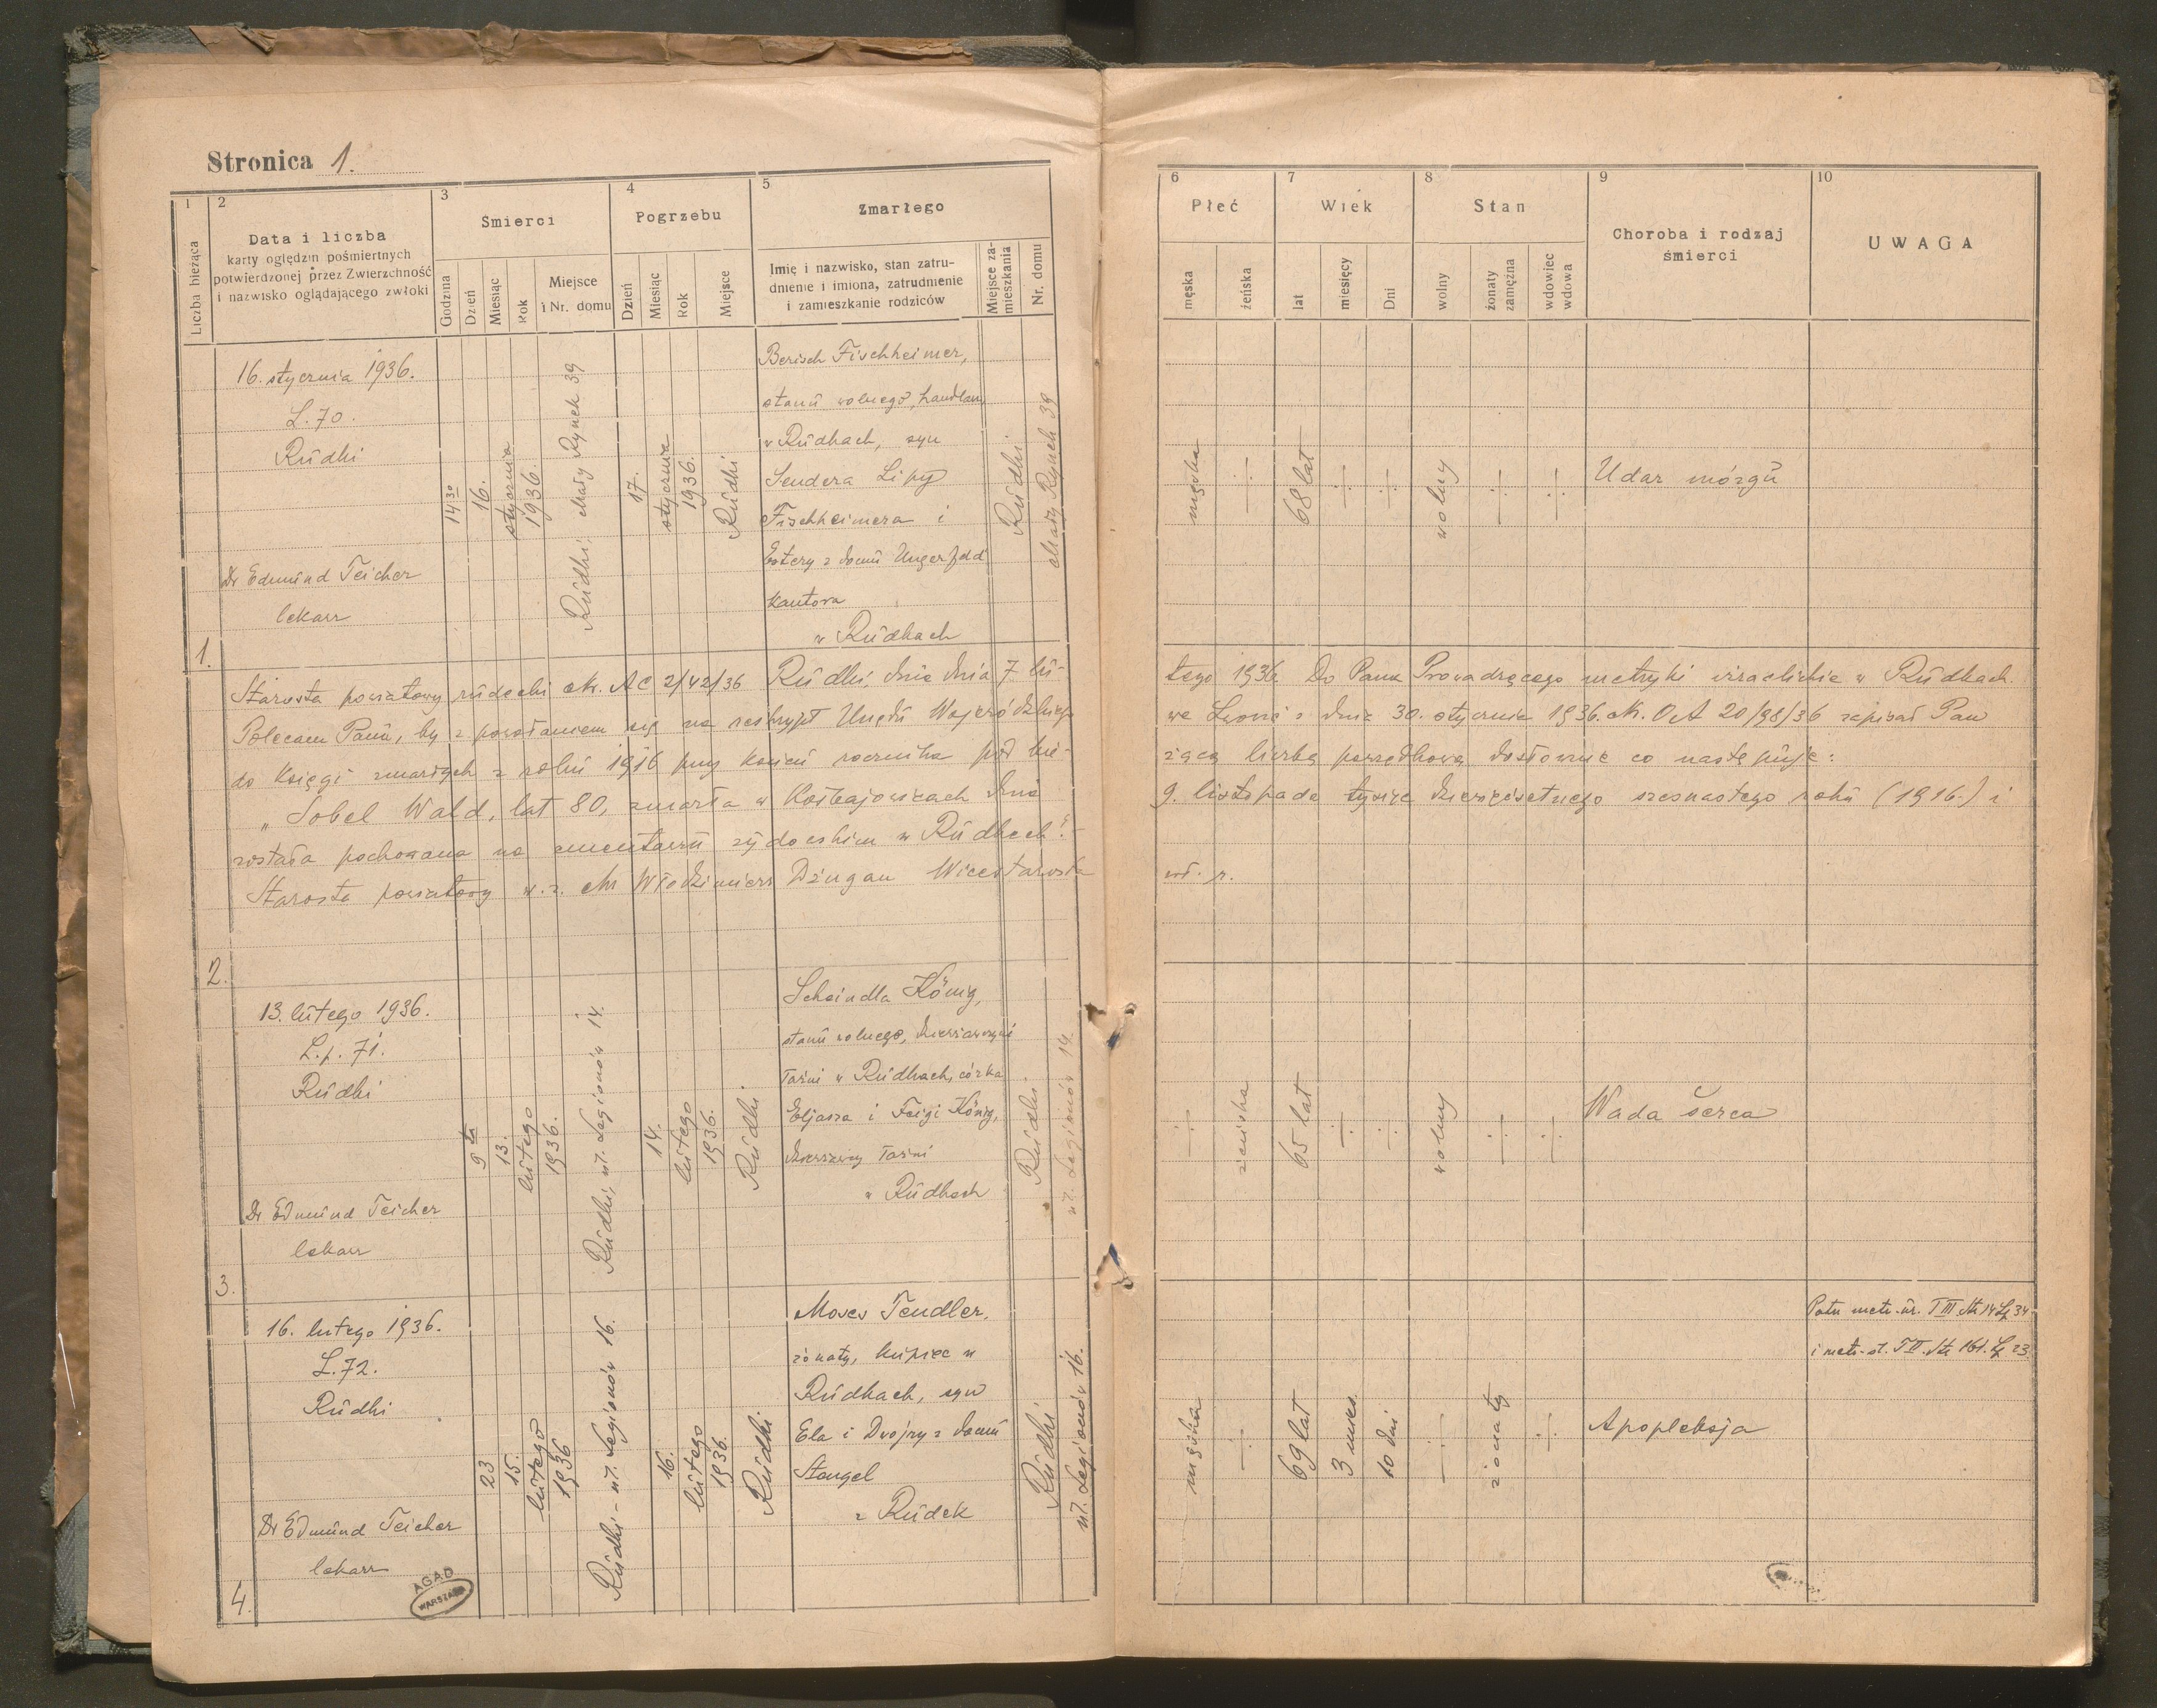 Stronica 1.
1 2 3 4 5
Liczba bieżąca
Data i liczba
karty oględzin pośmiertnych
potwierdzonej przez Zwierzchność
i nazwisko oglądającego zwłoki
Smierci
Godzina
Dzień
Miesiąc
Rok
Miejsce
i Nr. domu
Pogrzebu
Dzień
Miesiąc
Rok
Miejsce
Zmarłego
Imię i nazwisko, stan zatru-
dnienie i imiona, zatrudnienie
i zamieszkanie rodziców
Miejsce za-
mieszkania
Nr. domu
6 7 8 9 10
Płeć
męska
żeńska
Wiek
lat
miesięcy
Dni
Stan
wolny
żonaty
zamężna
wdowiec
wdowa
Choroba i rodzaj
śmierci
UWAGA
1.
16. stycznia 1936.
L. 70.
Rudki
Dr Edmund Teicher
lekarz
14 30
16.
stycznia
1936.
Rudki, Mały Rynek 39
17.
stycznia
1936.
Rudki
Berisch Fischheimer,
stanu wolnego, handlarz
w Rudkach, syn
Sendera Lipy
Fischheimera i
Estery z domu Ungerfeld
kantora
w Rudkach
Rudki
Mały Rynek 39
męska
÷
68 lat
÷
÷
wolny
÷
÷
Udar mózgu
2.
Starosta powiatowy rudecki Nr. AC 2/42/36 Rudki, dnia dnia 7 lu-
tego 1936. Do Pana Prowadzącego metryki izraelickie w Rudkach.
Polecam Panu, by z powołaniem się na reskrypt Urzędu Wojewódzkiego
we Lwowie z dnia 30. stycznia 1936. Nr. OA 20/98/36 zapisał Pan
do Księgi zmarłych z roku 1916 przy końcu rocznika pod bie-
żącą liczbą porządkową dosłownie co następuje:
„Sobel Wald, lat 80, zmarła w Kołbajowicach dnia
9. listopada tysiąc dziewięćsetnego szesnastego roku (1916.) i
została pochowana na cmentarzu żydowskim w Rudkach".
Starosta powiatowy w. z. Mr Włodzimierz Dżugan Wicestarosta
wł. r.
3.
13. lutego 1936.
L.p. 71.
Rudki
Dr Edmund Teicher
lekarz
9 ta
13.
lutego
1936.
Rudki, ul. Legionów 14.
14.
lutego
1936.
Rudki.
Scheindla König,
stanu wolnego, dzierżawczyni
łaźni w Rudkach, córka
Eljasza i Feigi König,
dzierżawcy łaźni
w Rudkach
Rudki.
ul. Legionów 14.
÷
żeńska
65 lat
÷
÷
wolny
÷
÷
Wada serca
4.
16. lutego 1936.
L. 72.
Rudki
Dr Edmund Teicher
lekarz
23
15.
lutego
1936
Rudki - ul. Legionów 16.
16.
lutego
1936.
Rudki
Moses Tendler,
żonaty, kupiec w
Rudkach, syn
Ela i Dwojry z domu
Stangel
z Rudek
Rudki
ul. Legionów 16.
męska
÷
69 lat
3 mies.
10 dni
÷
żonaty
÷
Apopleksja
Patrz metr. ur. T III. Str 14 Lp 34.
i metr. śl. T II. Str 161. Lp 23.
AGAD
WARSZAWA